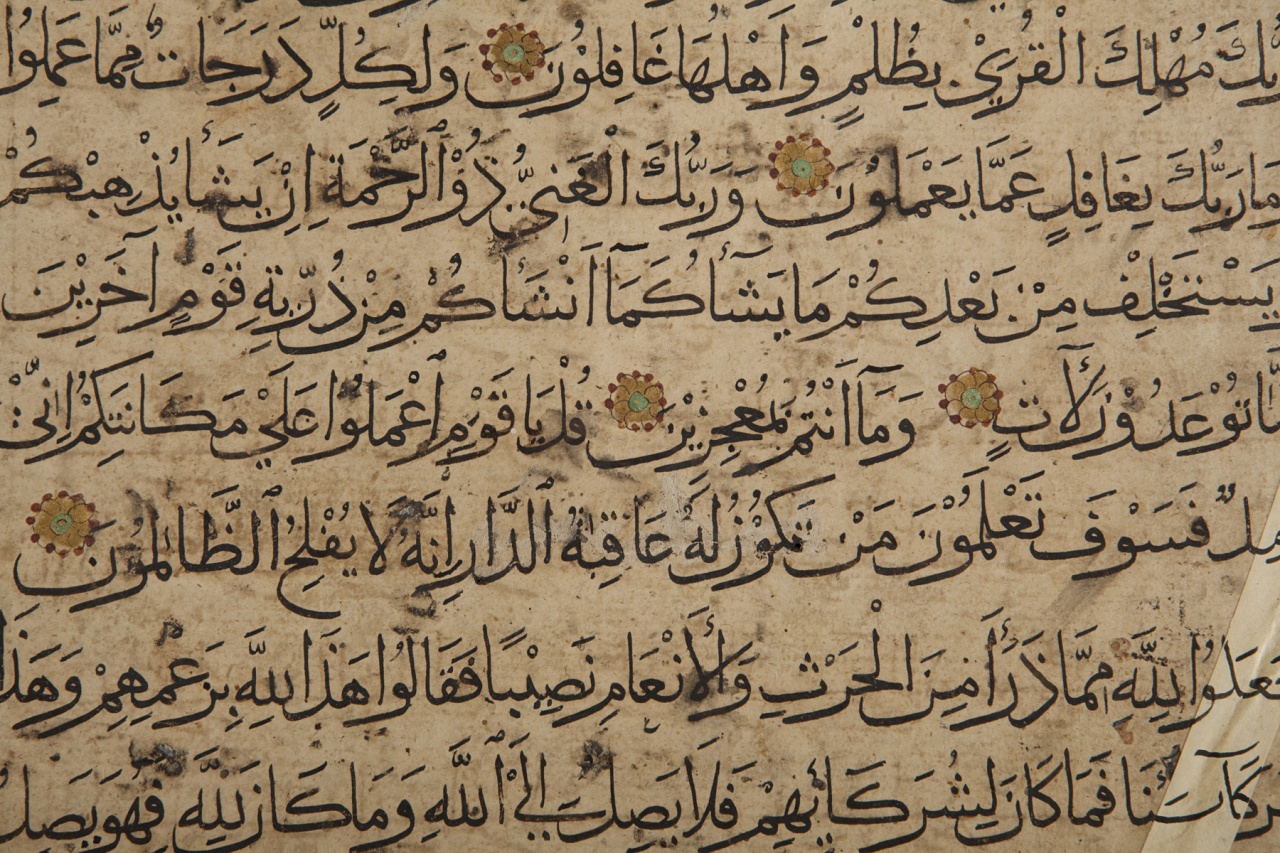 رَبُّكَ مُهْلِكَ الْقُرَيْ بِظُلْمٍ وَاَهْلُهَا غَافِلُوْنَ وَلِكُلٍّ دَرَجَاتٌ مِمَّا عَمِلُوا
وَمَا رَبُّكَ بِغَافِلٍ عَمَّا يَعْمَلُوْنَ وَرَبُّكَ الْغَنِيُّ ذُوْ الرَّحْمَةِ اِنْ يَشَأْ يُذْهِبْكُمْ
وَيَسْتَخْلِفْ مِنْ بَعْدِكُمْ مَا يَشَآءُ كَمَآ اَنْشَأَكُمْ مِنْ ذُرِّيَّةِ قَوْمٍ آخَرِيْنَ
مَا تُوْعَدُوْنَ لَآتٍ وَمَآ اَنْتُمْ بِمُعْجِزِيْنَ قُلْ يَا قَوْمِ اعْمَلُوا عَلَيْ مَكَانَتِكُمْ اِنِّيْ
فَسَوْفَ تَعْلَمُوْنَ مَنْ تَكُوْنُ لَهُ عَاقِبَةُ الدَّارِ اِنَّهُ لَا يُفْلِحُ الظَّالِمُوْنَ
لِلَّهِ مِمَّا ذَرَأَ مِنَ الْحَرْثِ وَالْأَنْعَامِ نَصِيْبًا فَقَالُوا هَذَا لِلَّهِ بِزَعْمِهِمْ وَهَذَا
فَمَا كَانَ لِشُرَكَائِهِمْ فَلَا يَصِلُ اِلَيْ اللَّهِ وَمَا كَانَ لِلَّهِ فَهُوَ يَصِلُ